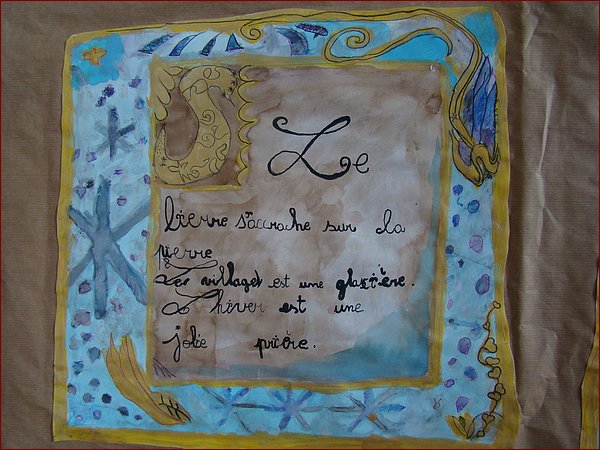 Le
lierre s'accroche sur la
pierre
Le village est une glacière.
L'hiver est une
jolie prière.